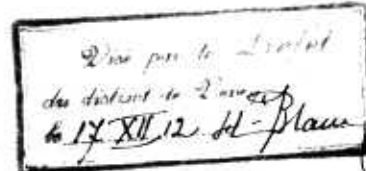 Visé par le Préfet
du district de
le 17 XII 12 sd - Blanc